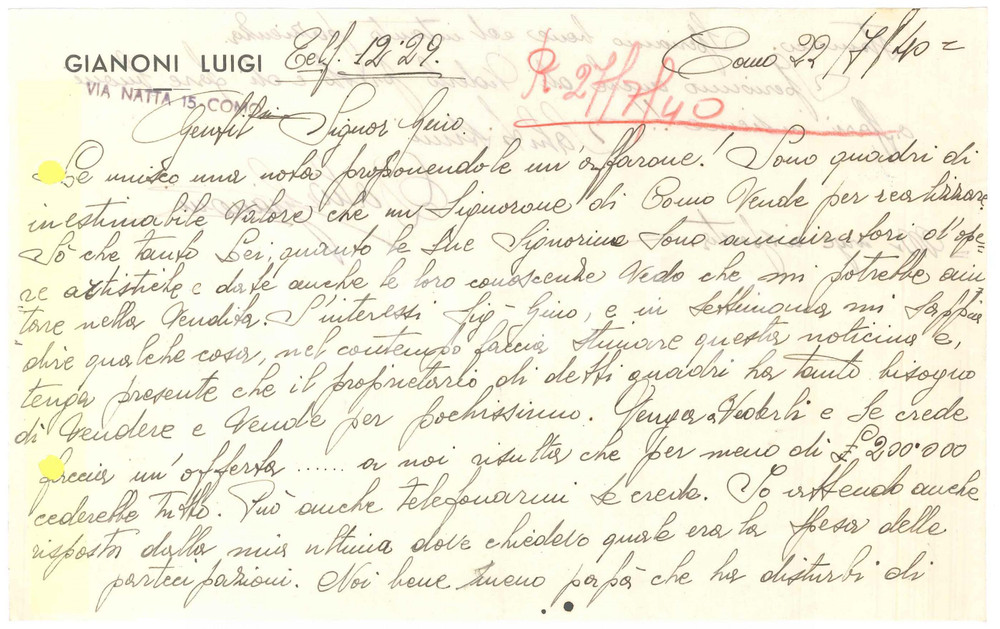 GIANONI LUIGI Telf. 12·29. Como 22/7/40=
VIA NATTA 15-COMO
R 27/7/40
Gentil Signor Gino.
Le unisco una nota proponendole un'affarone! Sono quadri di
inestimabile Valore che un Signorone di Como Vende per realizzare
Sò che tanto Lei, quanto le Sue Signorine Sono ammiratori d'ope=
re artistiche e date anche le loro conoscenze Vedo che mi potrebbe aiu=
tare nella Vendita. S'interessi Sig- Gino, e in Settimana mi Sappia
dire qualche cosa, nel contempo faccia Stimare questa noticina e,
tenga presente che il proprietario di detti quadri ha tanto bisogno
di Vendere e Vende per pochissimo. Venga a Vederli e Se crede
faccia un'offerta ...... a noi risulta che per meno di £ 200.000
cederebbe tutto. Può anche telefonarmi Se crede. Io attendo anche
risposta dalla mia ultima dove chiedevo quale era la Spesa delle
partecipazioni. Noi bene meno papà che ha disturbi di